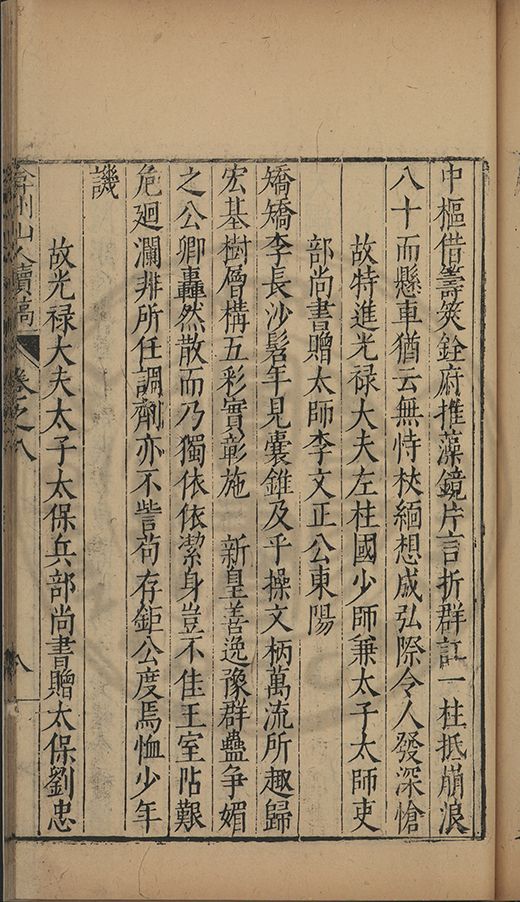 中樞借籌筴銓府推藻鏡片言折群訌一柱抵崩浪
八十而懸車猶云無恃杖緬想成弘際令人發深愴
故特進光禄大夫左柱國少師兼太子太師吏
部尚書贈太師李文正公東陽
矯矯李長沙髫年見囊錐及乎操文柄萬流所趣歸
宏基樹層構五彩實彰施　新皇善逸豫群蠱爭媚
之公卿轟然散而乃獨依依潔身豈不佳王室阽艱
危廻瀾非所任調劑亦不訾苟存鉅公度焉恤少年
譏
故光禄大夫太子太保兵部尚書贈太保劉忠
弇州山人續稿　卷之八　八